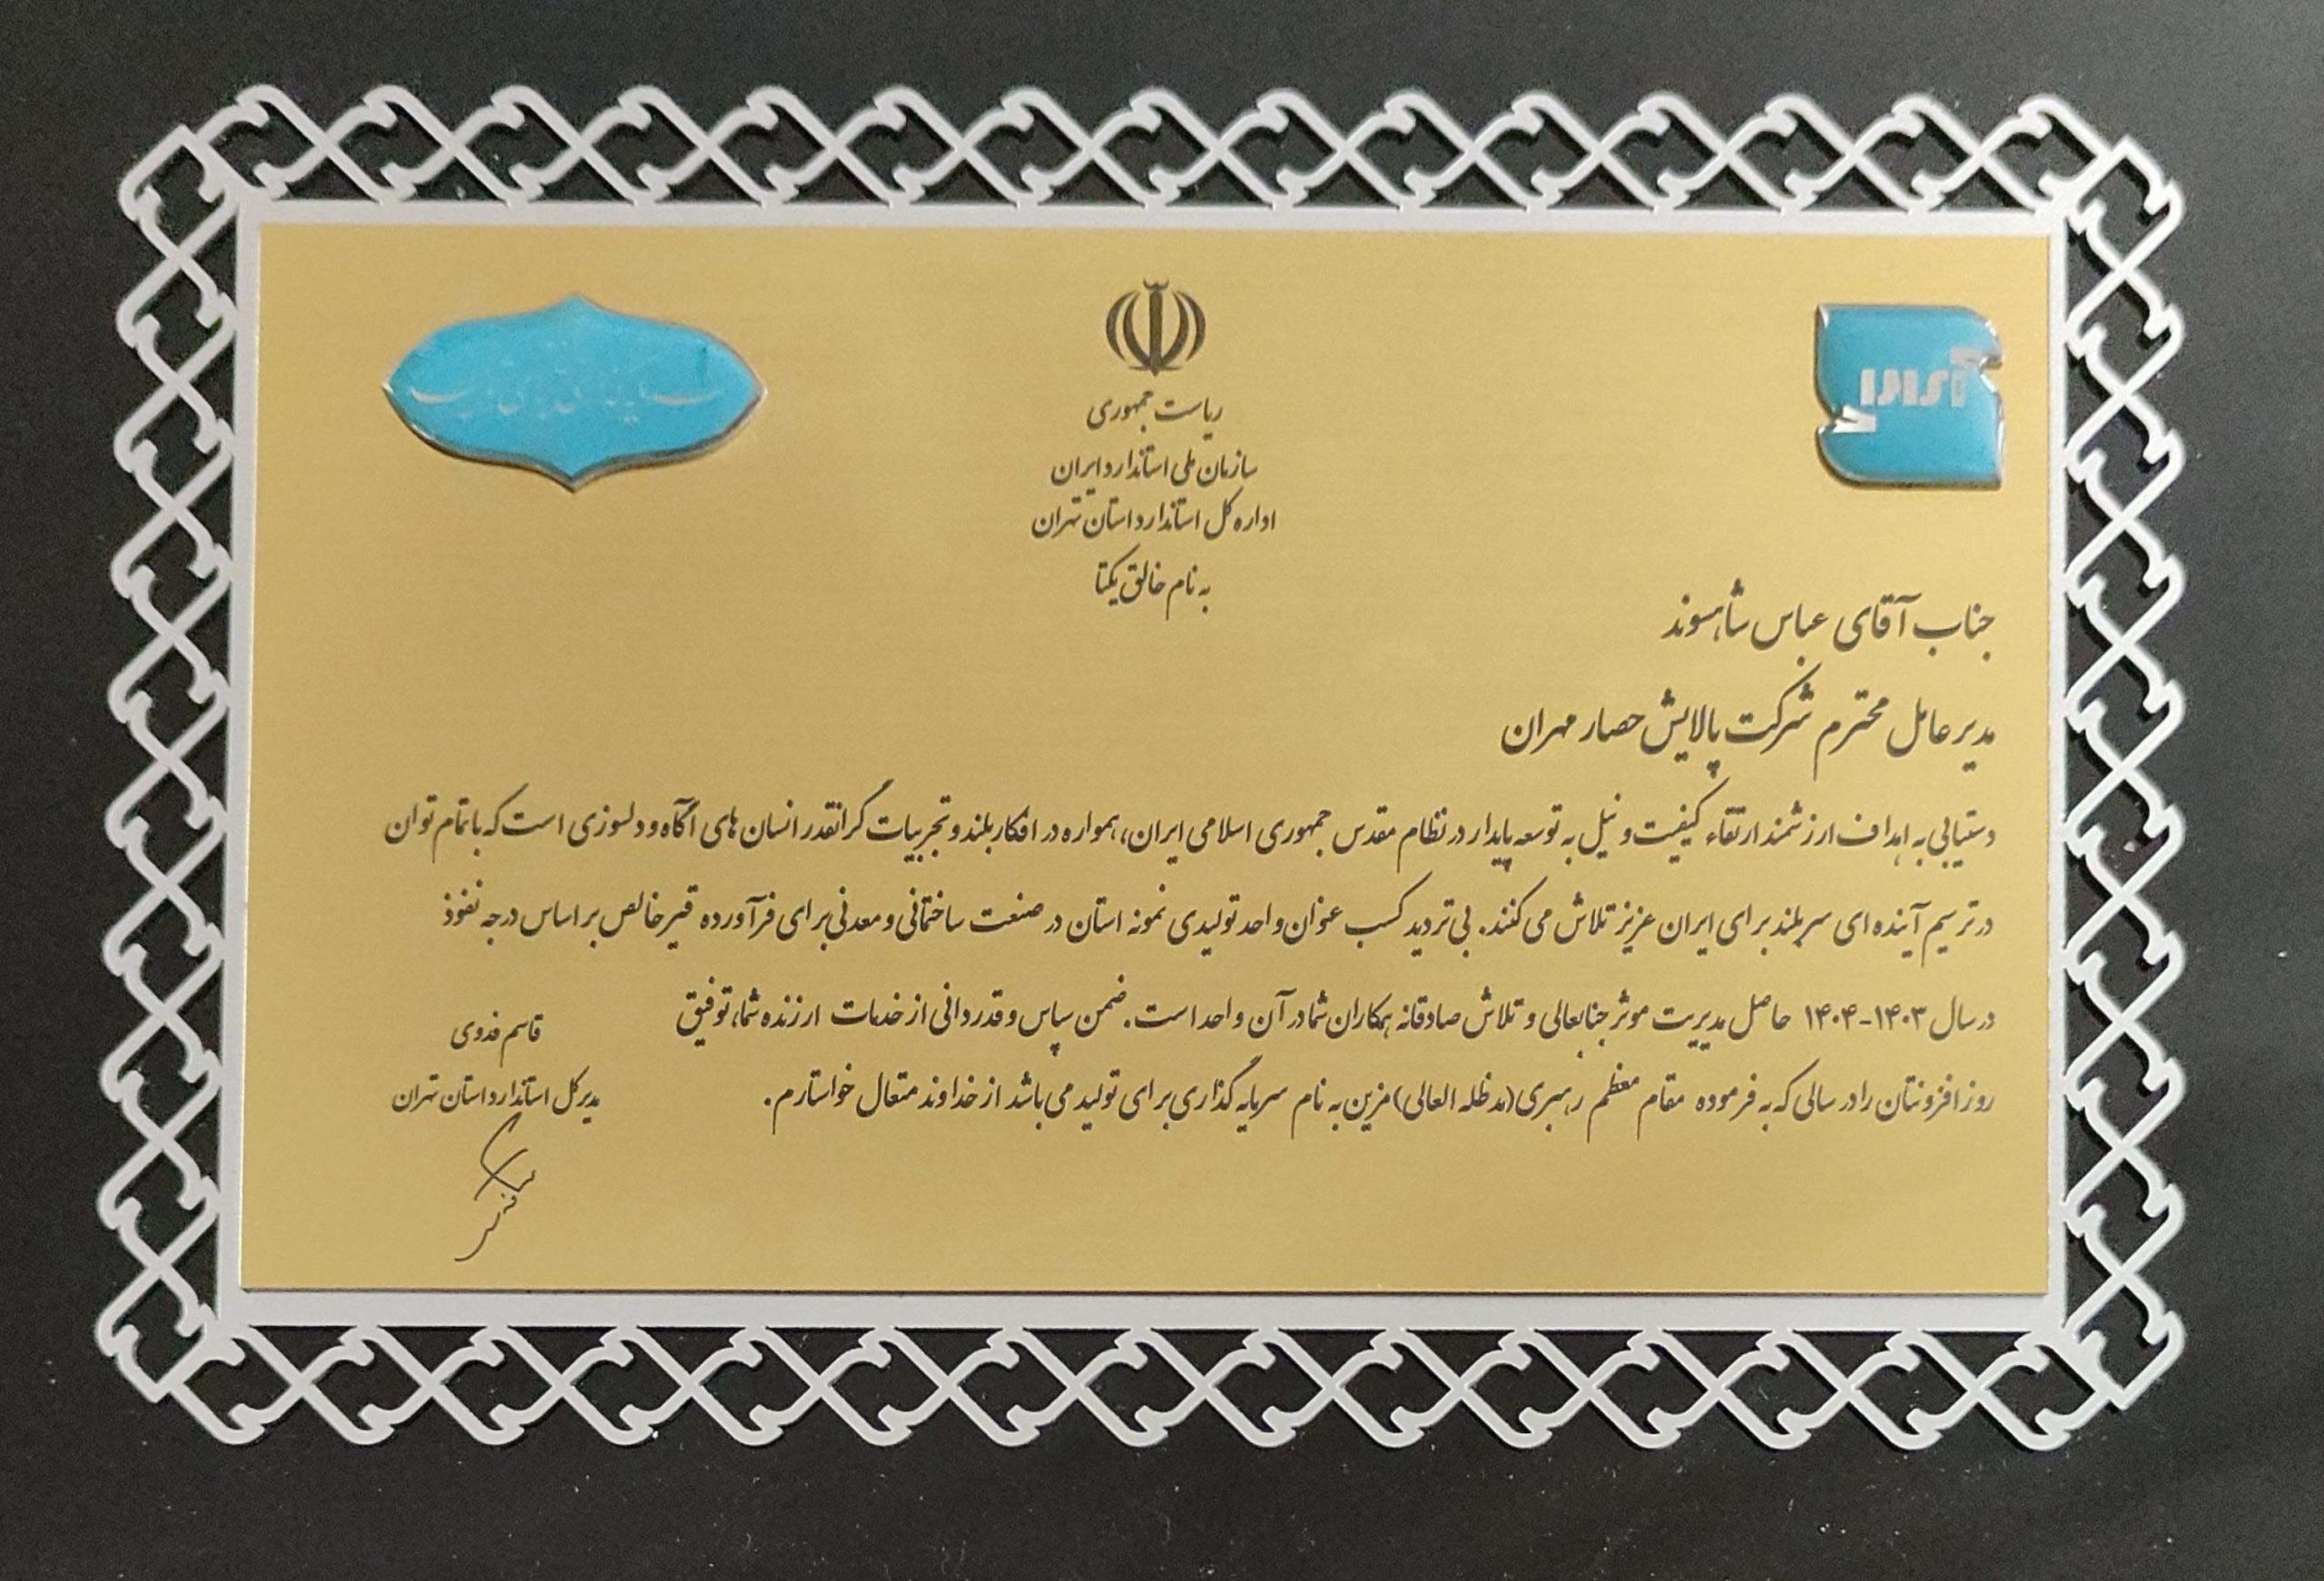 ریاست جمهوری
سازمان ملی استاندارد ایران
اداره کل استاندارد استان تهران
به نام خالق یکتا
جناب آقای عباس شاهسوند
مدیر عامل محترم شرکت پالایش حصار مهران
دستیابی به اهداف ارزشمند ارتقاء کیفیت و نیل به توسعه پایدار در نظام مقدس جمهوری اسلامی ایران، همواره در افکار بلند و تجربیات گرانقدر انسان های آگاه و دلسوزی است که با تمام توان
در ترسیم آینده ای سربلند برای ایران عزیز تلاش می کنند. بی تردید کسب عنوان واحد تولیدی نمونه استان در صنعت ساختمانی و معدنی برای فرآورده قیر خالص بر اساس درجه نفوذ
در سال ۱۴۰۳-۱۴۰۴ حاصل مدیریت موثر جنابعالی و تلاش صادقانه همکاران شما در آن واحد است. ضمن سپاس و قدردانی از خدمات ارزنده شما، توفیق
روز افزونتان را در سالی که به فرموده مقام معظم رهبری (مد ظله العالی) مزین به نام سرمایه گذاری برای تولید می باشد از خداوند متعال خواستارم.
قاسم فدوی
مدیر کل استاندارد استان تهران